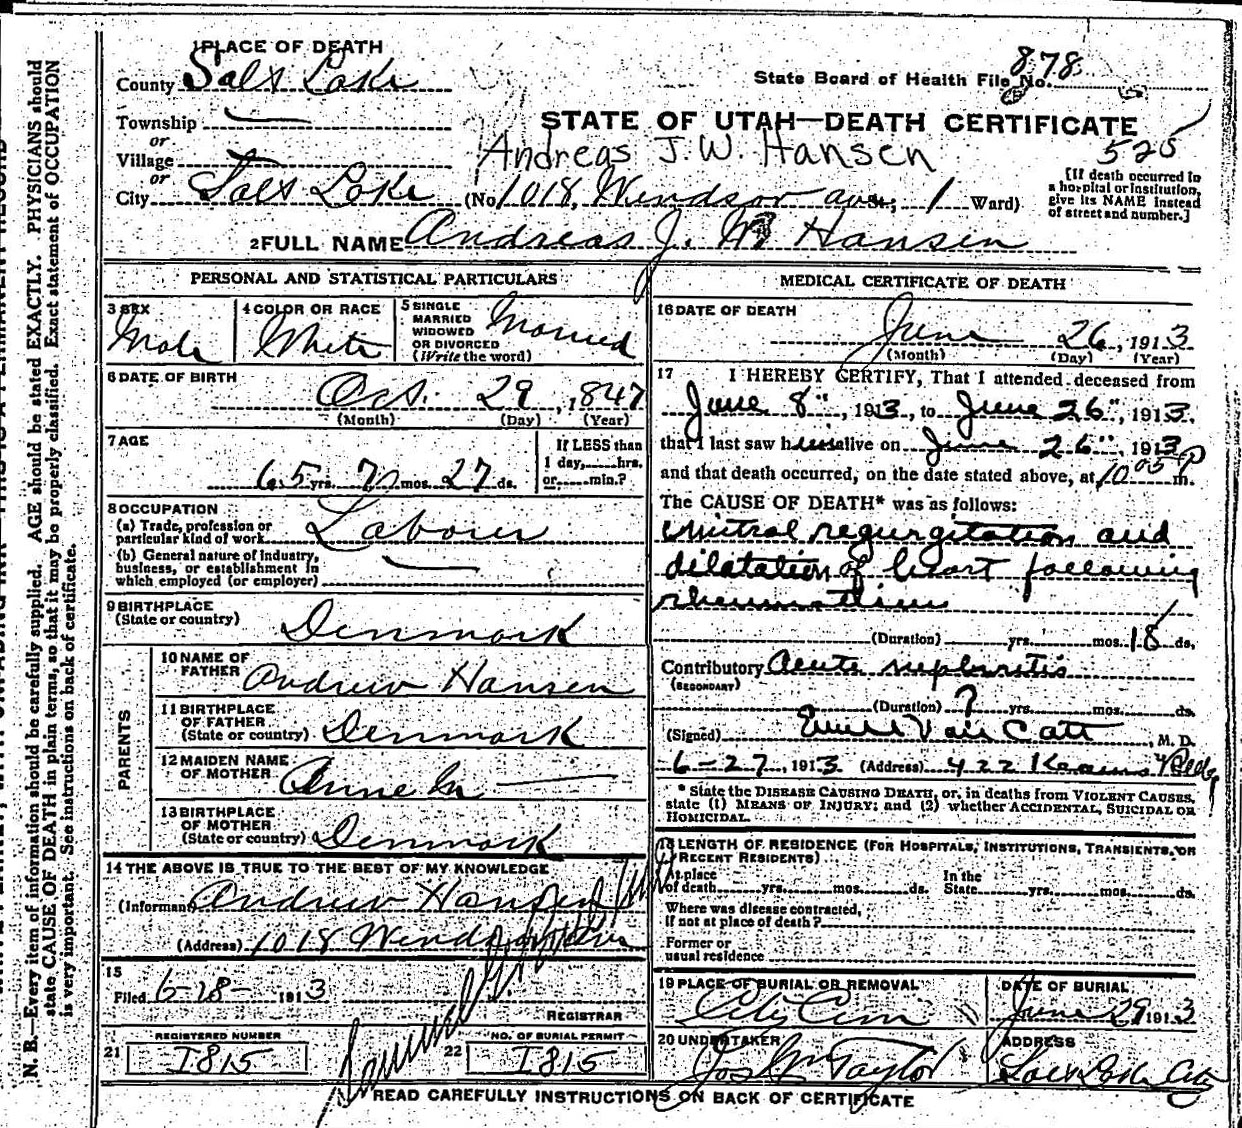 PLACE OF DEATH
County Salt Lake
State Board of Health File No. 878
Township
or
Village
or
City Salt Lake (No. 1018, Windsor ave St.; 1 Ward)
STATE OF UTAH—DEATH CERTIFICATE
Andreas J.W. Hansen
525
[If death occurred in a hospital or institution, give its NAME instead of street and number.]
2 FULL NAME Andreas J. W. Hansen
PERSONAL AND STATISTICAL PARTICULARS
3 SEX Male
4 COLOR OR RACE White
5 SINGLE MARRIED WIDOWED OR DIVORCED (Write the word) Married
6 DATE OF BIRTH Oct. 29, 1847
(Month) (Day) (Year)
7 AGE 65 yrs. 7 mos. 27 ds.
If LESS than 1 day, hrs. or min.?
8 OCCUPATION
(a) Trade, profession or particular kind of work Laborer
(b) General nature of industry, business, or establishment in which employed (or employer)
9 BIRTHPLACE (State or country) Denmark
PARENTS
10 NAME OF FATHER Andrew Hansen
11 BIRTHPLACE OF FATHER (State or country) Denmark
12 MAIDEN NAME OF MOTHER Anne M
13 BIRTHPLACE OF MOTHER (State or country) Denmark
14 THE ABOVE IS TRUE TO THE BEST OF MY KNOWLEDGE
(Informant) Andrew Hansen
(Address) 1018 Windsor
15
Filed 6-28- 1913
REGISTRAR
REGISTERED NUMBER
21 I815
NO. OF BURIAL PERMIT
22 I815
MEDICAL CERTIFICATE OF DEATH
16 DATE OF DEATH
June 26, 1913
(Month) (Day) (Year)
17 I HEREBY CERTIFY, That I attended deceased from
June 8", 1913, to June 26", 1913.
that I last saw him alive on June 26", 1913
and that death occurred, on the date stated above, at 10 05 P m.
The CAUSE OF DEATH* was as follows:
mitral regurgitation and
dilatation of heart following
rheumatism
(Duration) yrs. mos. 18 ds.
Contributory Acute nephritis
(SECONDARY)
(Duration) ? yrs. mos. ds.
(Signed) Van Cott, M. D.
6-27, 1913 (Address) 422 Kearns Bldg
* State the DISEASE CAUSING DEATH, or, in deaths from VIOLENT CAUSES, state (1) MEANS OF INJURY; and (2) whether ACCIDENTAL, SUICIDAL OR HOMICIDAL.
18 LENGTH OF RESIDENCE (FOR HOSPITALS, INSTITUTIONS, TRANSIENTS, OR RECENT RESIDENTS)
At place of death yrs. mos. ds. In the State yrs. mos. ds.
Where was disease contracted, if not at place of death?
Former or usual residence
19 PLACE OF BURIAL OR REMOVAL City Cem
DATE OF BURIAL June 29 1913
20 UNDERTAKER Jos Wm Taylor
ADDRESS Salt Lake City
READ CAREFULLY INSTRUCTIONS ON BACK OF CERTIFICATE
N. B.—Every item of information should be carefully supplied. AGE should be stated EXACTLY. PHYSICIANS should
state CAUSE OF DEATH in plain terms, so that it may be properly classified. Exact statement of OCCUPATION
is very important. See instructions on back of certificate.